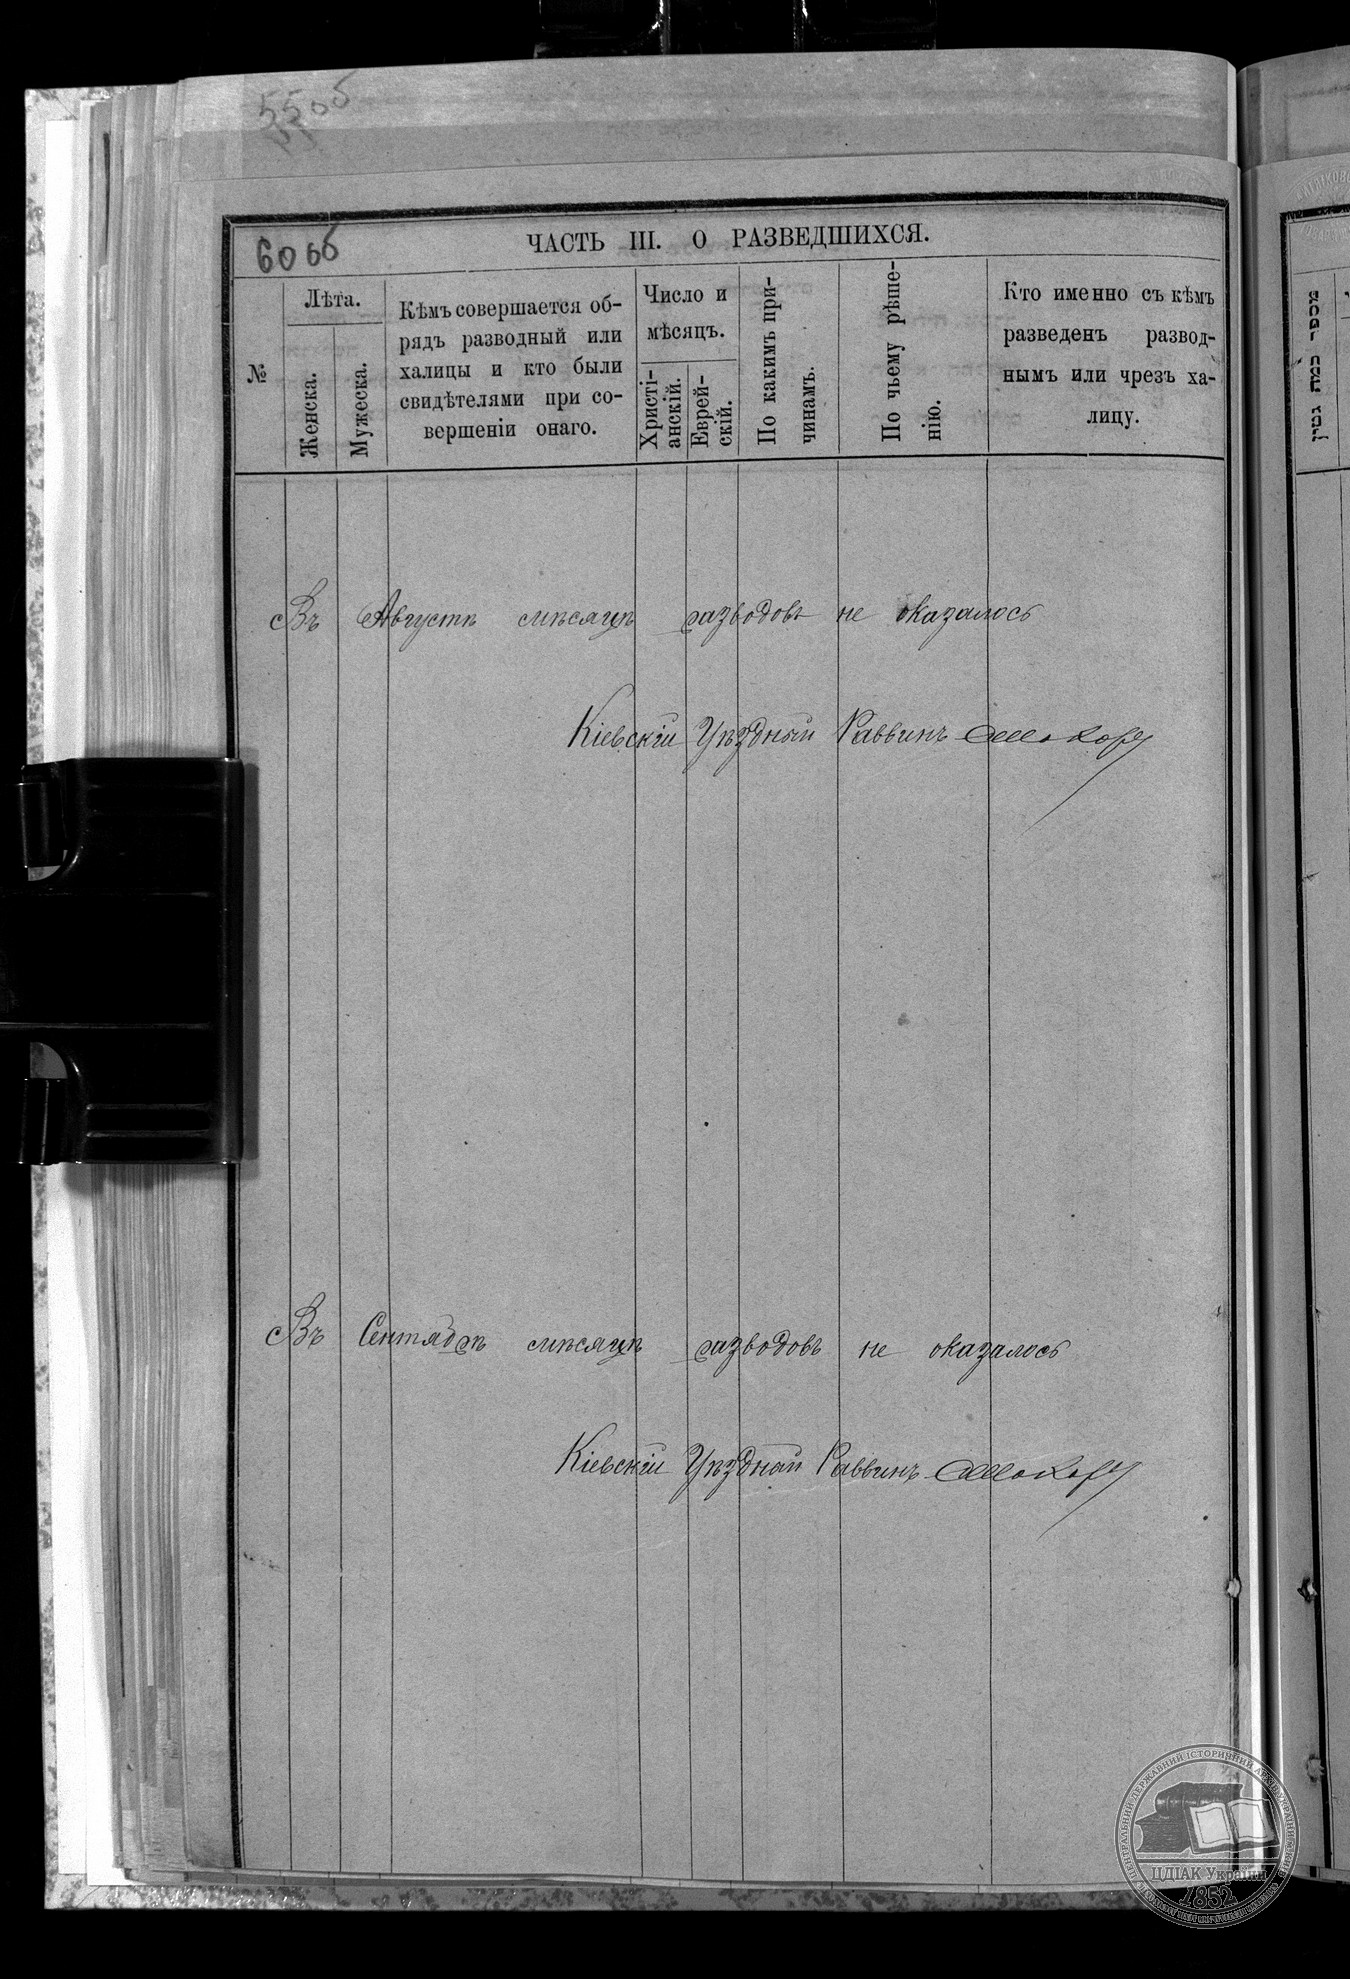 55об
60об
ЧАСТЬ III. О РАЗВЕДШИХСЯ.
№
Лѣта.
Женска.
Мужеска.
Кѣмъ совершается об-
рядъ разводный или
халицы и кто были
свидѣтелями при со-
вершеніи онаго.
Число и
мѣсяцъ.
Христі-
анскій.
Еврей-
скій.
По какимъ при-
чинамъ.
По чьему рѣше-
нію.
Кто именно съ кѣмъ
разведенъ развод-
нымъ или чрезъ ха-
лицу.
Въ Августѣ мѣсяцѣ разводовъ не оказалось
Кіевскій Уѣздный Раввинъ
Въ Сентябрѣ мѣсяцѣ разводовъ не оказалось
Кіевскій Уѣздный Раввинъ
מספר כמה גטין
ЦЕНТРАЛЬНИЙ ДЕРЖАВНИЙ ІСТОРИЧНИЙ АРХІВ УКРАЇНИ
ЦДІАК України
1852